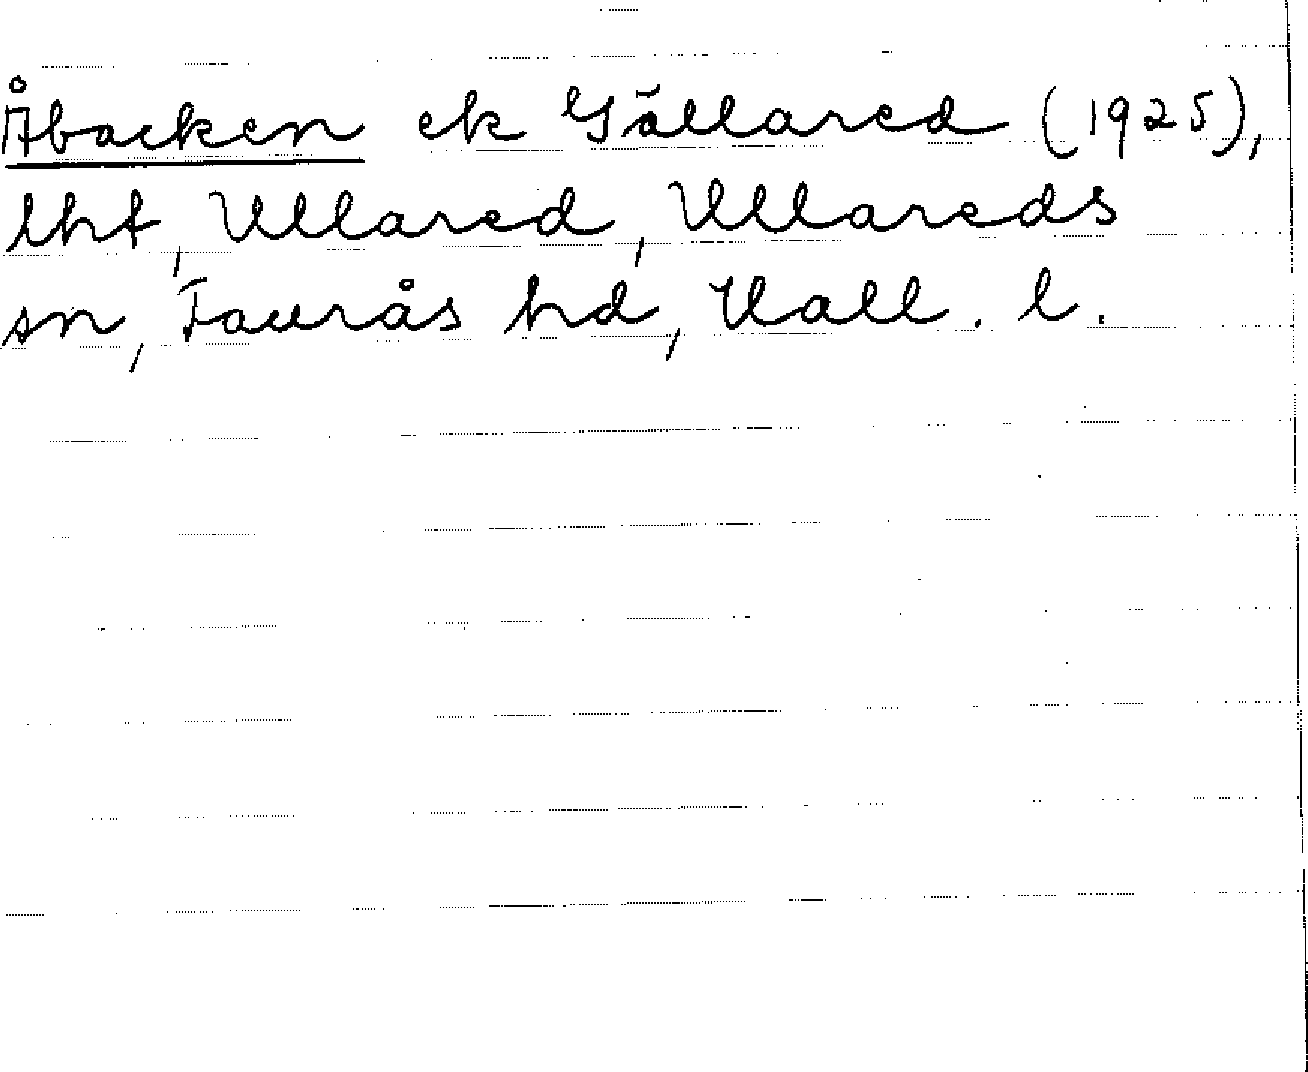 Åbacken ek Gällared (1925),
lht, Ullared, Ullareds
sn, Faurås hd, Hall. l.